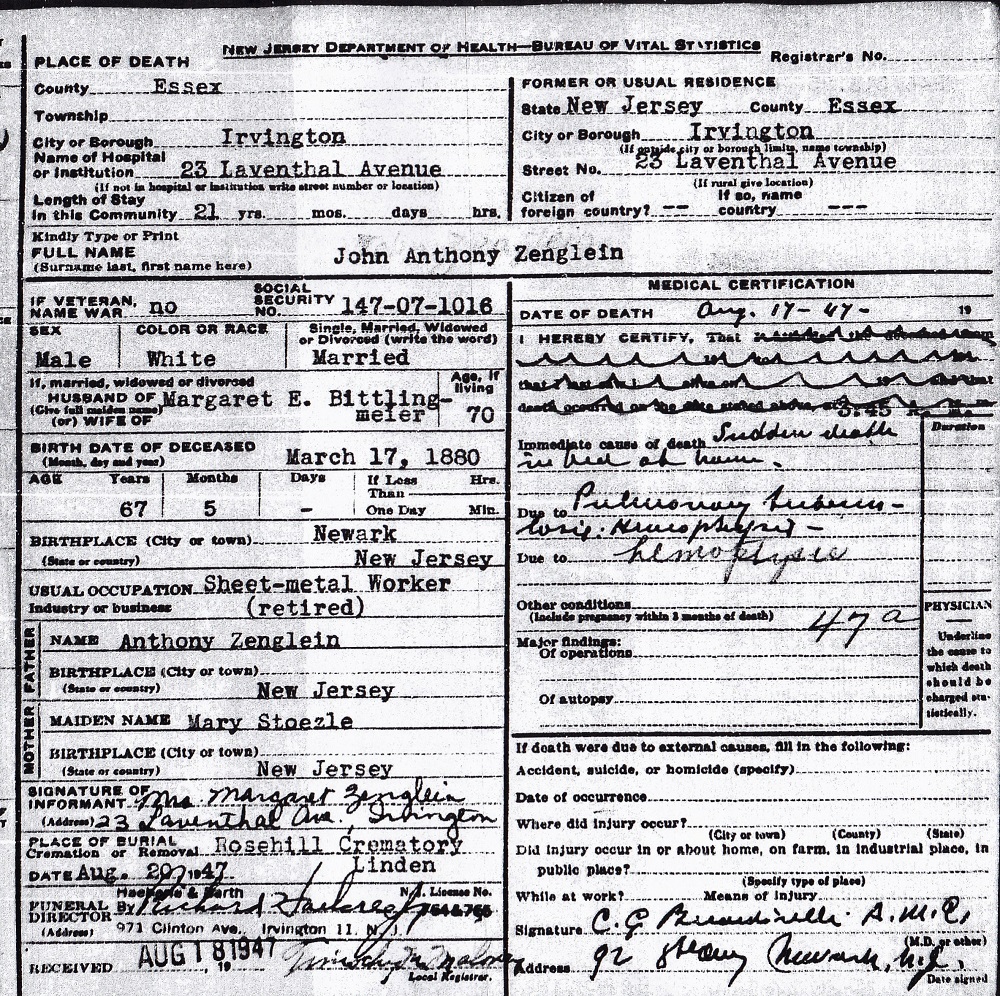 NEW JERSEY DEPARTMENT OF HEALTH—BUREAU OF VITAL STATISTICS
Registrar's No.
PLACE OF DEATH
County Essex
Township
City or Borough Irvington
Name of Hospital
or Institution 23 Laventhal Avenue
(If not in hospital or institution write street number or location)
Length of Stay
in this Community 21 yrs. mos. days hrs.
FORMER OR USUAL RESIDENCE
State New Jersey County Essex
City or Borough Irvington
(If outside city or borough limits, name township)
Street No. 23 Laventhal Avenue
(If rural give location)
Citizen of If so, name
foreign country? -- country ---
Kindly Type or Print
FULL NAME John Anthony Zenglein
(Surname last, first name here)
IF VETERAN, NAME WAR no
SOCIAL SECURITY NO. 147-07-1016
SEX COLOR OR RACE Single, Married, Widowed
or Divorced (write the word)
Male White Married
If, married, widowed or divorced Age, if living
HUSBAND OF Margaret E. Bittling-
(Give full maiden name)
(or) WIFE OF meier 70
BIRTH DATE OF DECEASED March 17, 1880
(Month, day and year)
AGE Years Months Days If Less Than One Day Hrs. Min.
67 5 -
BIRTHPLACE (City or town) Newark
(State or country) New Jersey
USUAL OCCUPATION Sheet-metal Worker
Industry or business (retired)
FATHER
NAME Anthony Zenglein
BIRTHPLACE (City or town)
(State or country) New Jersey
MOTHER
MAIDEN NAME Mary Stoezle
BIRTHPLACE (City or town)
(State or country) New Jersey
SIGNATURE OF
INFORMANT Mrs Margaret Zenglein
(Address) 23 Laventhal Ave, Irvington
PLACE OF BURIAL Rosehill Crematory
Cremation or Removal
DATE Aug. 20, 1947 Linden
Haeberle & Barth N.J. License No.
FUNERAL DIRECTOR By Richard
(Address) 971 Clinton Ave., Irvington 11. N.J.
RECEIVED AUG 18 1947 19
Local Registrar.
MEDICAL CERTIFICATION
DATE OF DEATH Aug. 17-47- 19
I HEREBY CERTIFY, That
3:45
Duration
Immediate cause of death Sudden death
in bed at home.
Due to Pulmonary tubercu-
losis. Hemoptysis -
Due to hemoptysis
Other conditions
(Include pregnancy within 3 months of death)
47a
Major findings:
Of operations
Of autopsy
PHYSICIAN
—
Underline
the cause to
which death
should be
charged sta-
tistically.
If death were due to external causes, fill in the following:
Accident, suicide, or homicide (specify)
Date of occurrence
Where did injury occur?
(City or town) (County) (State)
Did injury occur in or about home, on farm, in industrial place, in
public place?
(Specify type of place)
While at work? Means of injury
Signature C. G.
(M.D. or other)
Address 92 Newark, N.J.
Date signed